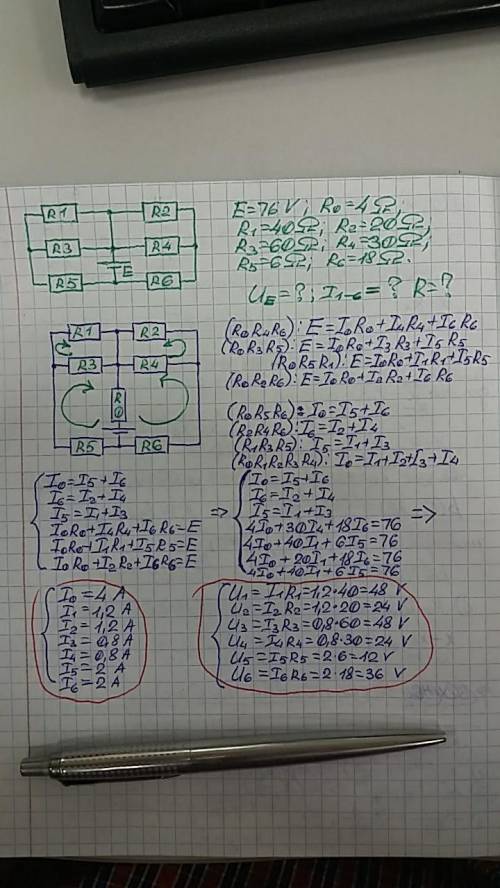 R1 R2
R3 R4
E
R5 R6
E=76 V; R0=4Ω;
R1=40Ω; R2=20Ω;
R3=60Ω; R4=30Ω;
R5=6Ω; R6=18Ω.
UE=?; I1-6=? R=?
R1 R2
R3 R4
R0
R5 R6
(R0R4R6): E=I0R0+I4R4+I6R6
(R0R3R5): E=I0R0+I3R3+I5R5
(R0R5R1): E=I0R0+I1R1+I5R5
(R0R2R6): E=I0R0+I2R2+I6R6
(R0R5R6): I0=I5+I6
(R2R4R6): I6=I2+I4
(R1R3R5): I5=I1+I3
(R0R1R2R3R4): I0=I1+I2+I3+I4
I0=I5+I6
I6=I2+I4
I5=I1+I3
I0R0+I4R4+I6R6=E
I0R0+I1R1+I5R5=E
I0R0+I2R2+I6R6=E
=>
I0=I5+I6
I6=I2+I4
I5=I1+I3
4I0+30I4+18I6=76
4I0+40I1+6I5=76
4I0+20I1+18I6=76
4I0+40I1+6I5=76
=>
I0=4 A
I1=1,2 A
I2=1,2 A
I3=0,8 A
I4=0,8 A
I5=2 A
I6=2 A
U1=I1R1=1,2·40=48 V
U2=I2R2=1,2·20=24 V
U3=I3R3=0,8·60=48 V
U4=I4R4=0,8·30=24 V
U5=I5R5=2·6=12 V
U6=I6R6=2·18=36 V